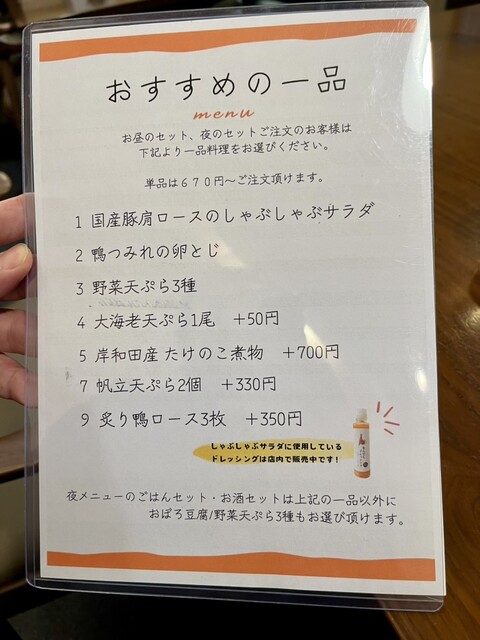 おすすめの一品
menu
お昼のセット、夜のセットご注文のお客様は
下記より一品料理をお選びください。
単品は670円～ご注文頂けます。
1 国産豚肩ロースのしゃぶしゃぶサラダ
2 鴨つみれの卵とじ
3 野菜天ぷら3種
4 大海老天ぷら1尾 +50円
5 岸和田産 たけのこ煮物 +700円
7 帆立天ぷら2個 +330円
9 炙り鴨ロース3枚 +350円
しゃぶしゃぶサラダに使用している
ドレッシングは店内で販売中です!
夜メニューのごはんセット・お酒セットは上記の一品以外に
おぼろ豆腐/野菜天ぷら3種もお選び頂けます。